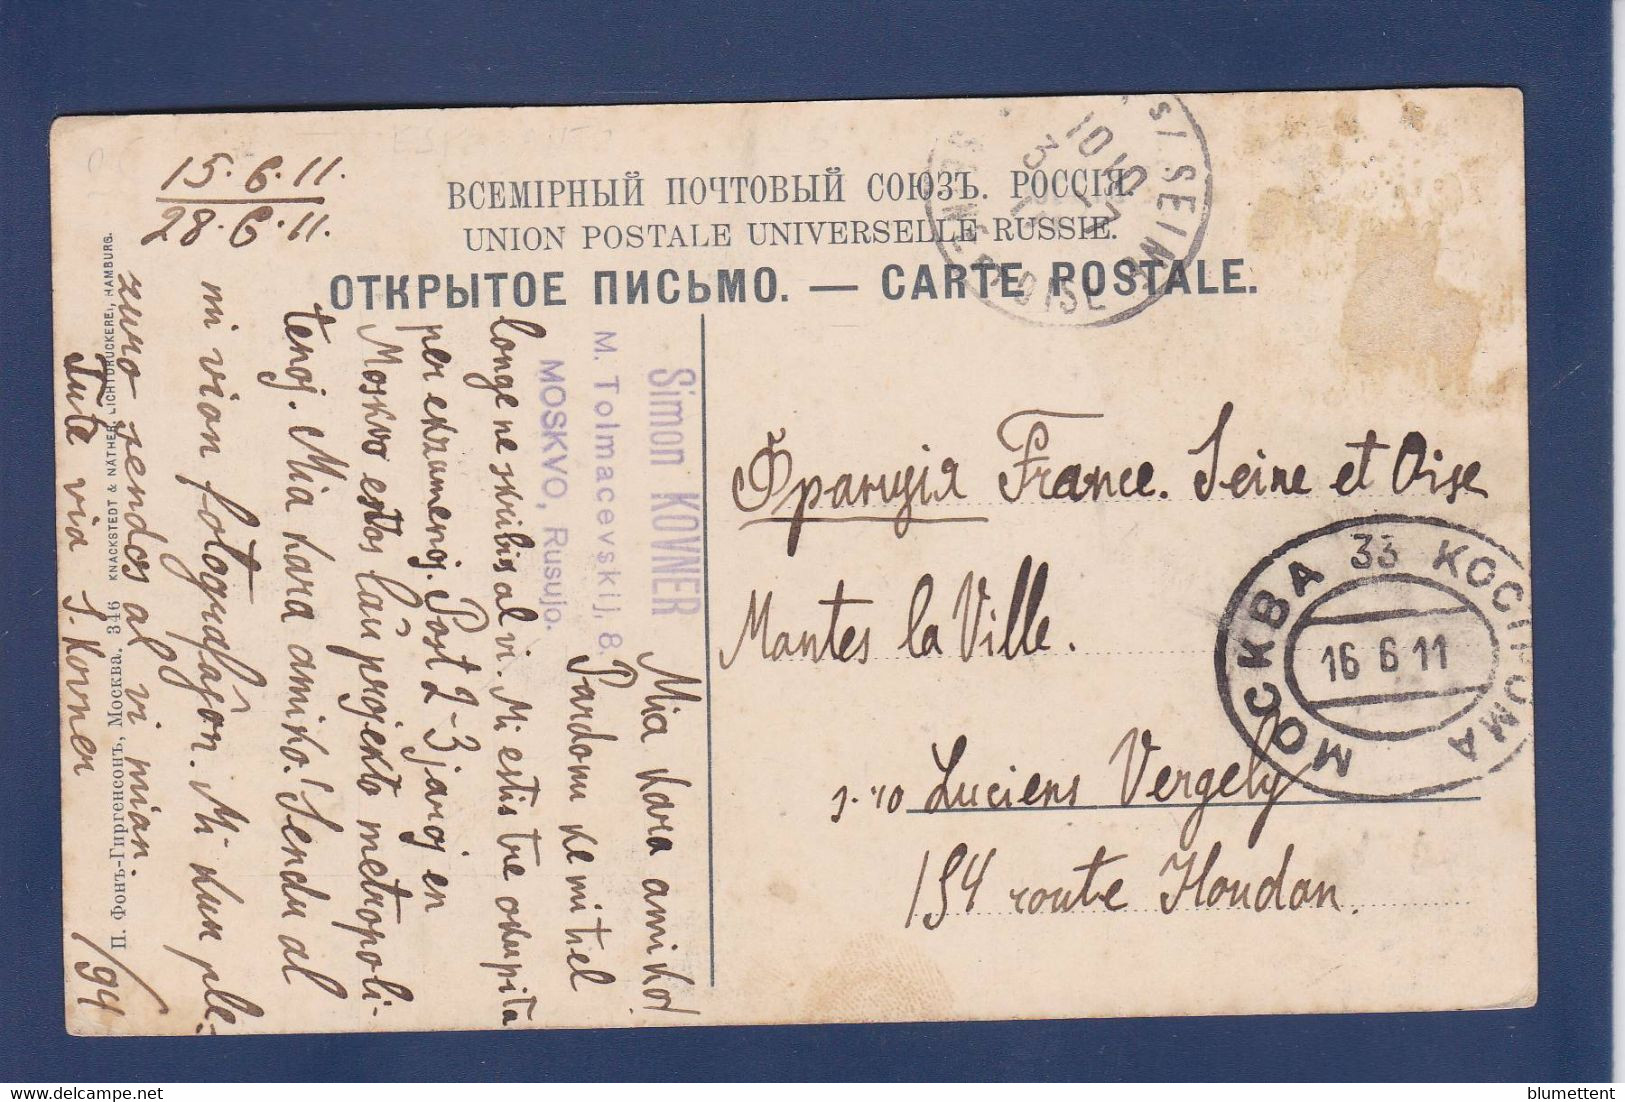 15.6.11.
28.6.11.
ВСЕМІРНЫЙ ПОЧТОВЫЙ СОЮЗЪ. РОССІЯ.
UNION POSTALE UNIVERSELLE RUSSIE.
ОТКРЫТОЕ ПИСЬМО. — CARTE POSTALE.
Simon KOVNER
M. Tolmacevskij, 8.
MOSKVO, Rusujo.
Mia kara amiko!
Pardonu ke mi tiel
longe ne skribis al vi. Mi estis tre okupita
per ekzamenoj. Post 2-3 jaroj en
Moskvo estos laŭ projekto metropoli-
tenoj. Mia kara amiko! Sendu al
mi vian fotografaĵon. Mi kun ple-
zuro sendos al vi mian.
Tute via S. Kovner
1/94
П. Фонъ-Гиргенсонъ, Москва. 346 KNACKSTEDT & NÄTHER, LICHTDRUCKEREI, HAMBURG.
Франція France. Seine et Oise
Mantes la Ville.
s-ro Luciens Vergely
154 route Houdan.
МОСКВА 33 КОСТРОМА
16 6 11
SEINE
OISE
blumettent